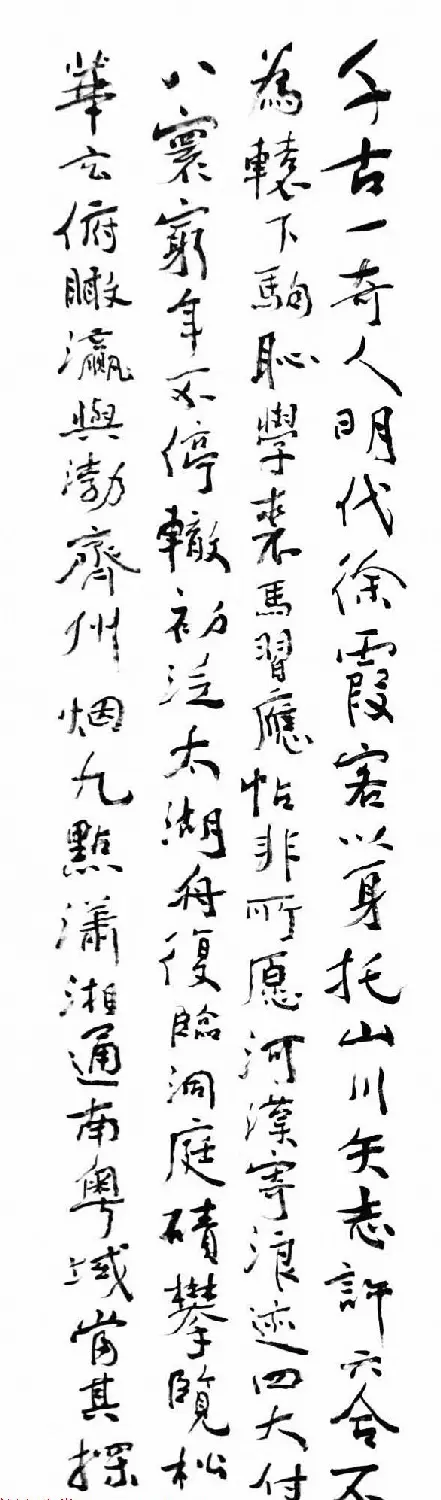 千古一奇人明代徐霞客以身托山川矢志許六合不
為轅下駒恥學裘馬習應帖非所愿河漢寄浪迹四大付
八寰窮年不停轍初泛太湖舟復臨洞庭磧攀覽松
華玄俯瞰瀛與渤齊州烟九點瀟湘通南粵域當其探